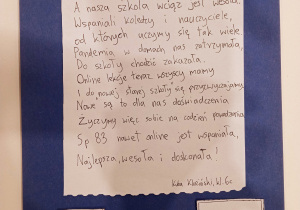 A nasza szkoła wciąż jest wesoła.
Wspaniali koledzy i nauczyciele,
od których uczymy się tak wiele.
Pandemia w domach nas zatrzymała,
Do szkoły chodzić zakazała.
Online lekcje teraz wszyscy mamy
I do nowej starej szkoły się przyzwyczajamy.
Nowe są to dla nas doświadczenia
Życzymy więc sobie na codzień powodzenia.
Sp 83 nawet online jest wspaniała,
Najlepsza, wesoła i doskonała!
Kuba kl. 6c